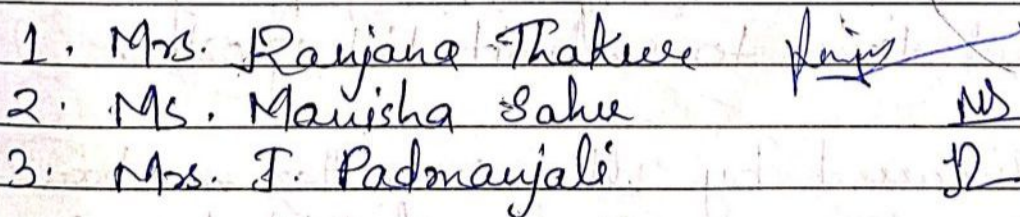 1. Mrs. Ranjana Thakur
2. Ms. Manisha Sahu
3. Mrs. J. Padmanjali